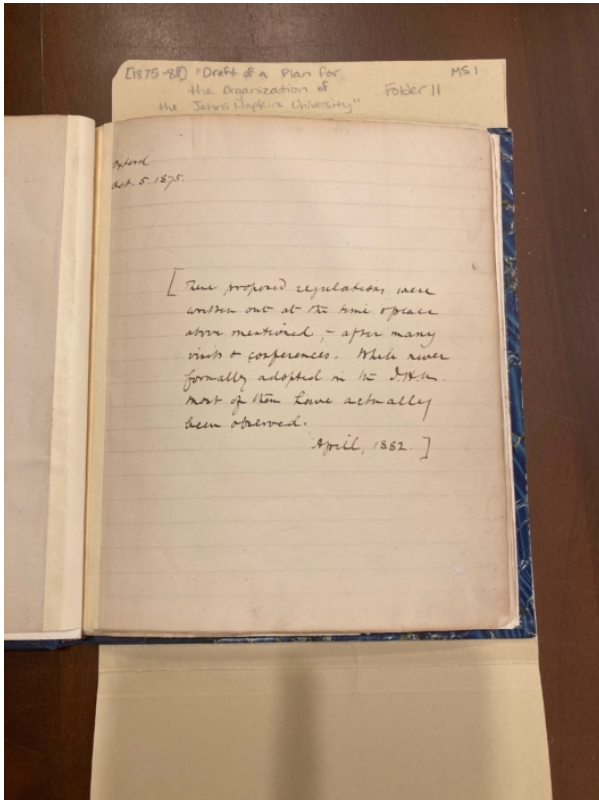 [1875-82] "Draft of a Plan for MS 1
the Organization of Folder 11
the Johns Hopkins University"
Oxford
Oct. 5. 1875.
[These proposed regulations were
written out at the time & place
above mentioned, – after many
visits & conferences. While never
formally adopted in the J.H.U.
most of them have actually
been observed.
April, 1882.]